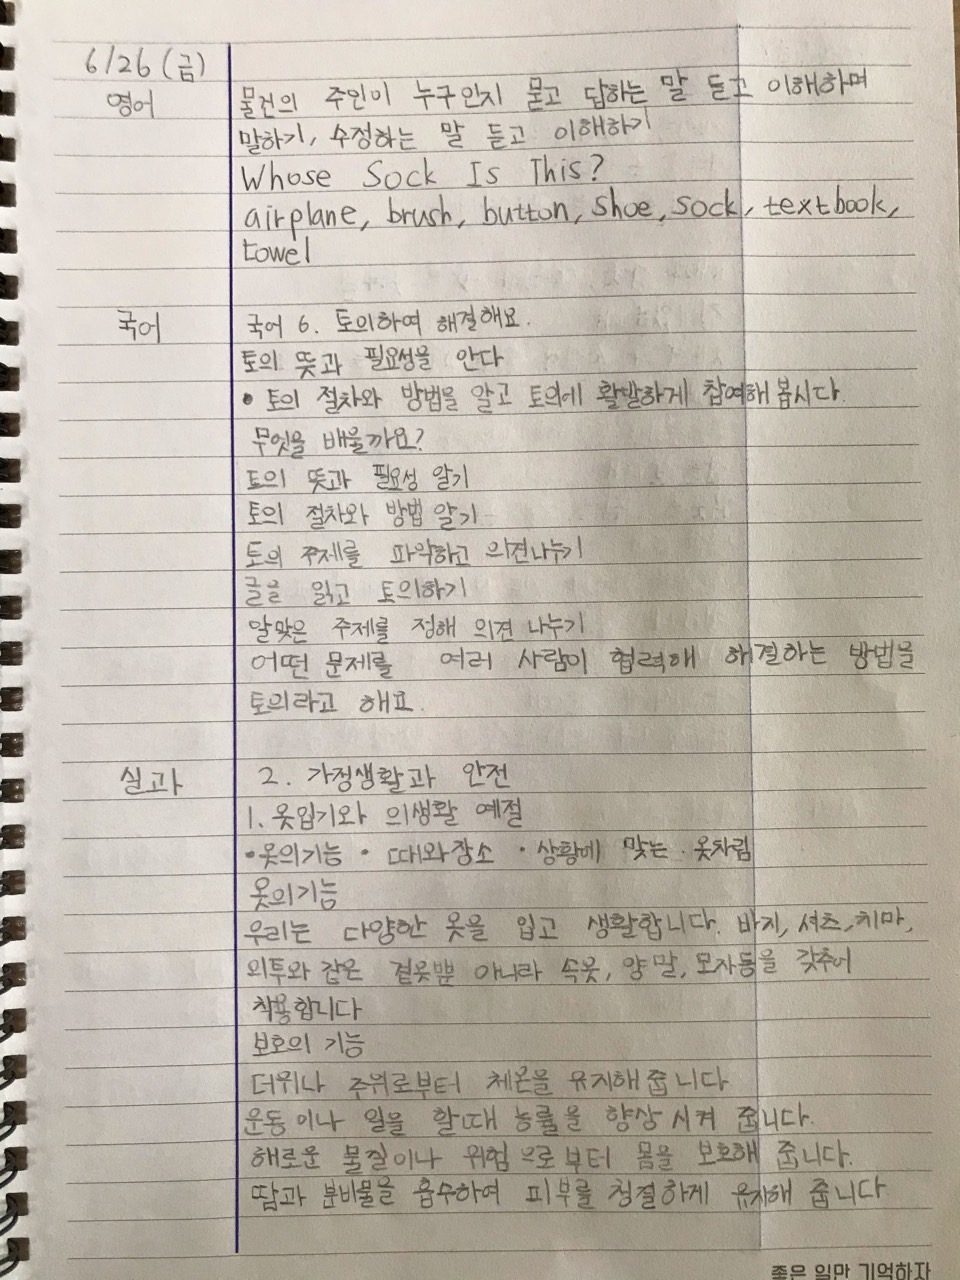 6/26 (금)
영어
물건의 주인이 누구인지 묻고 답하는 말 듣고 이해하며
말하기, 수정하는 말 듣고 이해하기
Whose Sock Is This?
airplane, brush, button, shoe, sock, textbook,
towel
국어
국어 6. 토의하여 해결해요.
토의 뜻과 필요성을 안다
• 토의 절차와 방법을 알고 토의에 활발하게 참여해 봅시다.
무엇을 배울까요?
토의 뜻과 필요성 알기
토의 절차와 방법 알기
토의 주제를 파악하고 의견나누기
글을 읽고 토의하기
알맞은 주제를 정해 의견 나누기
어떤 문제를 여러 사람이 협력해 해결하는 방법을
토의라고 해요.
실과
2. 가정생활과 안전
1. 옷입기와 의생활 예절
•옷의기능 • 때와장소 • 상황에 맞는 옷차림
옷의기능
우리는 다양한 옷을 입고 생활합니다. 바지, 셔츠, 치마,
외투와 같은 겉옷뿐 아니라 속옷, 양말, 모자등을 갖추어
착용합니다
보호의 기능
더위나 추위로부터 체온을 유지해 줍니다
운동이나 일을 할때 능률을 향상 시켜 줍니다.
해로운 물질이나 위험으로부터 몸을 보호해 줍니다.
땀과 분비물을 흡수하여 피부를 청결하게 유지해 줍니다
좋은 일만 기억하자